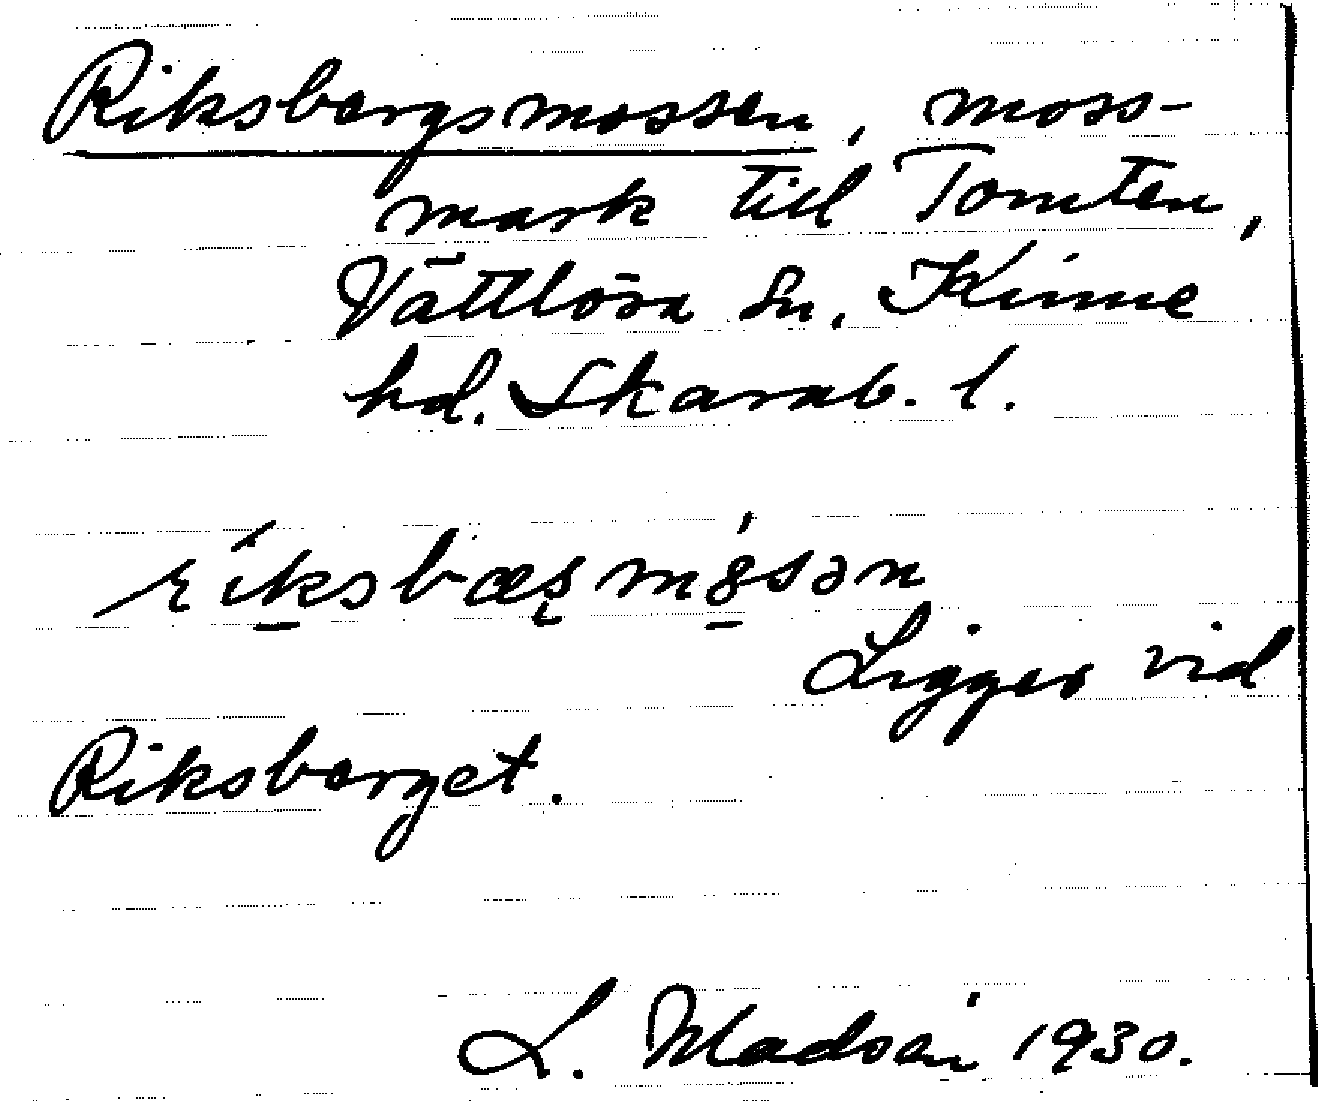 Riksbergsmossen, moss-
mark till Tomten,
Vättlösa sn, Kinne
hd. Skarab. l.
Ligger vid
Riksberget.
L. Madsén 1930.